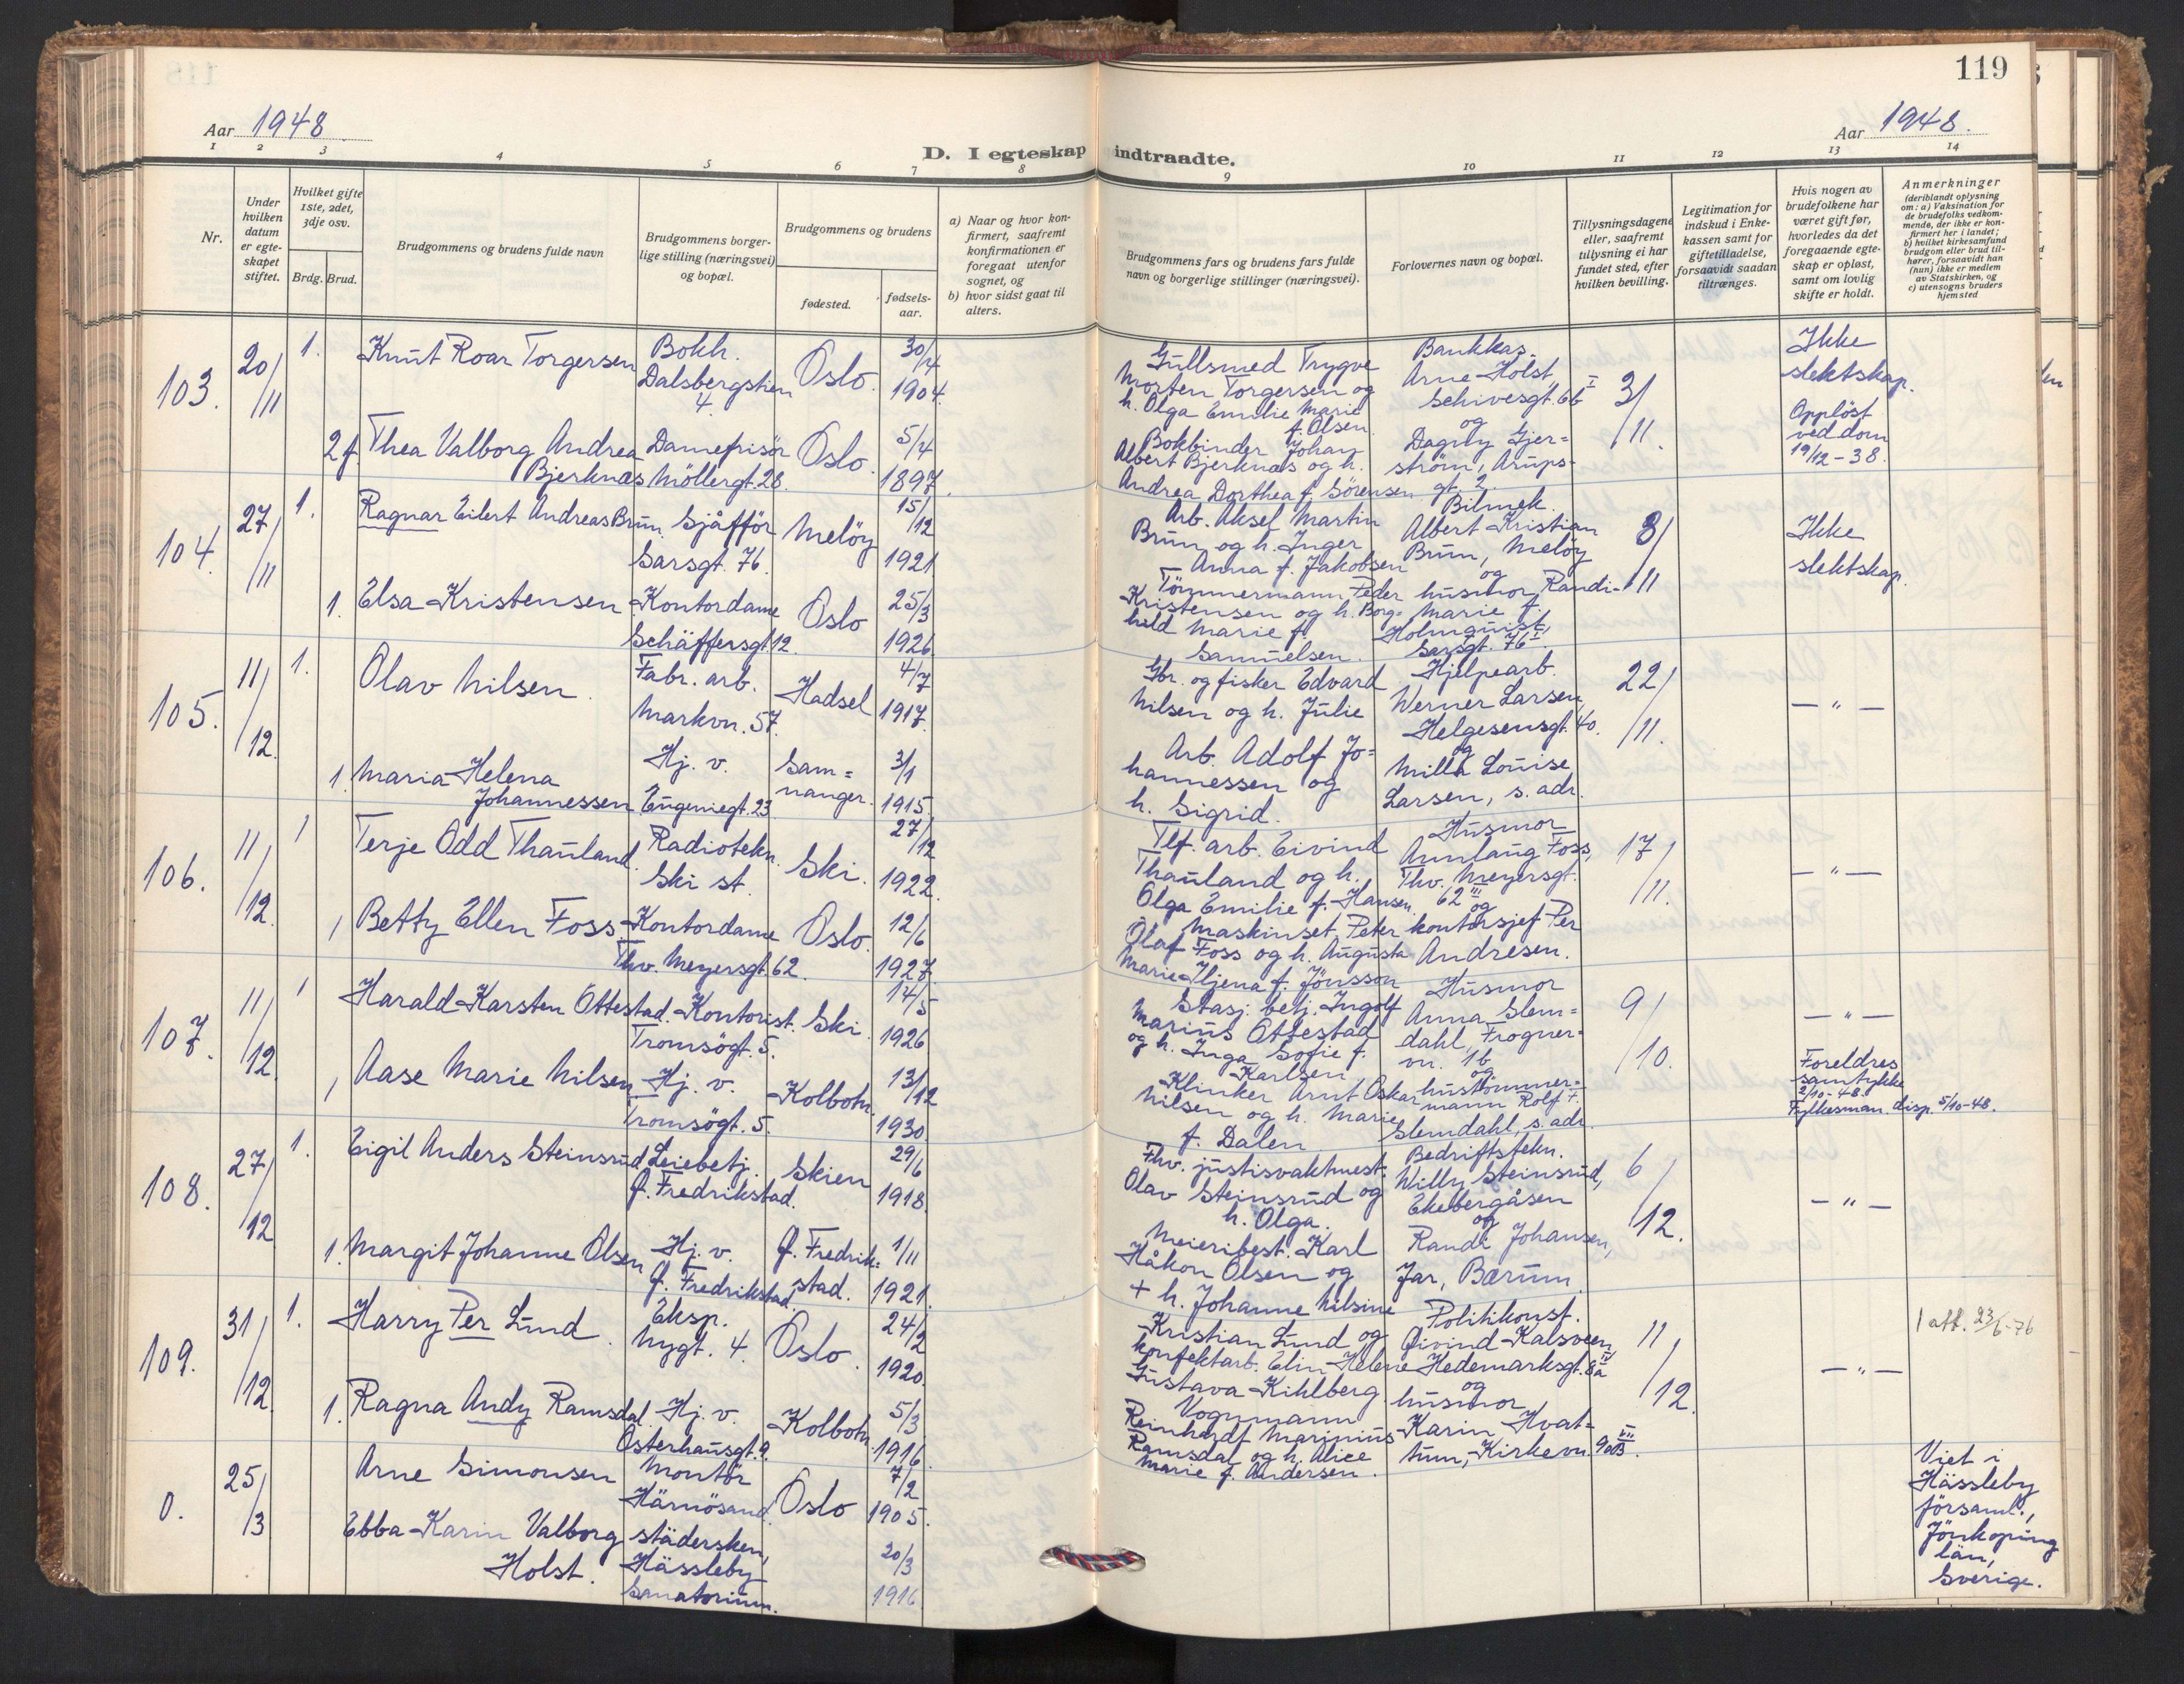 119
Aar 1948
Aar 1948.
D. I egteskap indtraadte.
1 2 3 4 5 6 7 8 9 10 11 12 13 14
Nr.
Under hvilken datum er egteskapet stiftet.
Hvilket gifte 1ste, 2det, 3dje osv.
Brdg. Brud.
Brudgommens og brudens fulde navn
Brudgommens borgerlige stilling (næringsvei) og bopæl.
Brudgommens og brudens
fødested.
fødselsaar.
a) Naar og hvor konfirmert, saafremt konfirmationen er foregaat utenfor sognet, og
b) hvor sidst gaat til alters.
Brudgommens fars og brudens fars fulde navn og borgerlige stillinger (næringsvei).
Forlovernes navn og bopæl.
Tillysningsdagene eller, saafremt tillysning ei har fundet sted, efter hvilken bevilling.
Legitimation for indskud i Enkekassen samt for giftetilladelse, forsaavidt saadan tiltrænges.
Hvis nogen av brudefolkene har været gift før, hvorledes da det foregaaende egteskap er opløst, samt om lovlig skifte er holdt.
Anmerkninger (deriblandt oplysning om: a) Vaksination for de brudefolks vedkommende, der ikke er konfirmert her i landet; b) hvilket kirkesamfund brudgom eller brud tilhører, forsaavidt han (hun) ikke er medlem av Statskirken, og c) utensogns bruders hjemsted
103. 20/11 1. Knut Roar Torgersen
Bokh. Dalsbergstien 4.
Oslo. 30/4 1904.
Gullsmed Trygve
Morten Torgersen og
h. Olga Emilie Marie
f. Olsen.
Bankkas.
Arne Holst,
Schivesgt. 6b I
og
3/11.
Ikke
slektskap.
2 f. Thea Valborg Andrea
Bjerknæs
Damefrisør
Möllergt. 28.
Oslo. 5/4 1897.
Bokbinder Johan
Albert Bjerknæs og h.
Andrea Dorthea f. Sörensen
Dagny Gjer=
ström, Arups-
gt. 2.
Opplöst
ved dom
19/12-38.
104. 27/11 1. Ragnar Eilert Andreas Brun
Sjåfför
Sarsgt. 76.
Melöy 15/12 1921
Arb. Aksel Martin
Brun og h. Inger
Anna f. Jakobsen
Bilmek.
Albert Kristian
Brun, Melöy
og
8/11
Ikke
slektskap.
1. Elsa Kristensen
Kontordame
Schäffersgt. 12.
Oslo 25/3 1926
Tömmermann Peder
Kristensen og h. Borg=
hild Marie f.
Samuelsen.
husmor Randi
Marie f.
Holmquist,
Sarsgt. 76 I
105. 11/12. 1. Olav Nilsen.
Fabr. arb.
Markvn. 57.
Hadsel 4/7 1917.
Gbr. og fisker Edvard
Nilsen og h. Julie
Hjelpearb.
Werner Larsen
Helgesensgt. 40.
og
22/11.
— " —
1. Maria Helena
Johannessen
Hj. v.
Eugeniegt. 23
Sam=
nanger. 3/1 1915.
Arb. Adolf Jo=
hannessen og
h. Sigrid.
Milla Louise
Larsen, s. adr.
106. 11/12. 1 Terje Odd Thauland.
Radiotekn.
Ski st.
Ski. 27/12 1922.
Tlf. arb. Eivind
Thauland og h.
Olga Emilie f. Hansen.
Husmor
Annlaug Foss,
Thv. Meyersgt.
62 III og
17/11.
— " —
1 Betty Ellen Foss
Kontordame
Thv. Meyersgt. 62.
Oslo. 12/6 1927.
Maskinset. Peter
Olaf Foss og h. Augusta
Marie f. Jönsson
kontorsjef Per
Andresen.
107. 11/12. 1 Harald Karsten Ottestad.
Kontorist.
Tromsögt. 5.
Ski. 14/5 1926
Stasj. betj. Ingolf
Marius Ottestad
og h. Inga Sofie f.
Karlsen
Husmor
Anna Slem=
dahl, Frogner=
vn. 1b
og
9/10.
— " —
1 Aase Marie Nilsen
Hj. v.
Tromsögt. 5.
Kolbotn. 13/12 1930.
Klinker Arnt Oskar
Nilsen og h. Marie
f. Dalen
hustömmer=
mann Rolf F.
Slemdahl, s. adr.
Foreldres
samtykke
2/10-48.
Fylkesman. disp. 5/10-48.
108. 27/12 1. Eigil Anders Steinsrud
Leiebetj.
Gl. Fredrikstad.
Skien 29/6 1918.
Fhv. justisvaktmest.
Olav Steinsrud og
h. Olga.
Bedriftstekn.
Willy Steinsrud,
Ekebergåsen
og
6/12.
— " —
1. Margit Johanne Olsen
Hj. v.
Gl. Fredrikstad.
Gl. Fredrik=
stad. 1/11 1921.
Meieribest. Karl
Håkon Olsen og
+ h. Johanne Nilsine
Randi Johansen,
Jar, Bærum.
109. 31/12. 1. Harry Per Lund.
Eksp.
Nygt. 4.
Oslo. 24/2 1920.
Kristian Lund og
konfektarb. Elin Helene
Gustava Kihlberg.
Politikonst.
Øivind Kalsveen,
Hedemarksgt. 8a IV
og
11/12.
— " —
1 att. 23/6-76
1. Ragna Andy Ramsdal.
Hj. v.
Osterhausgt. 9.
Kolbotn. 5/3 1916.
Vognmann
Reinhardt Marinius
Ramsdal og h. Alice
Marie f. Andersen.
husmor
Karin Hvat=
tum, Kirkevn. 90B VII.
0. 25/3 Arne Simonsen
Montör
Härnösand.
Oslo 7/2 1905.
Ebba Karin Valborg
Holst.
städersken,
Hässleby
Sanatorium.
20/3 1916.
Viet i
Hässleby
församl.,
Jönkoping
län,
Sverige.